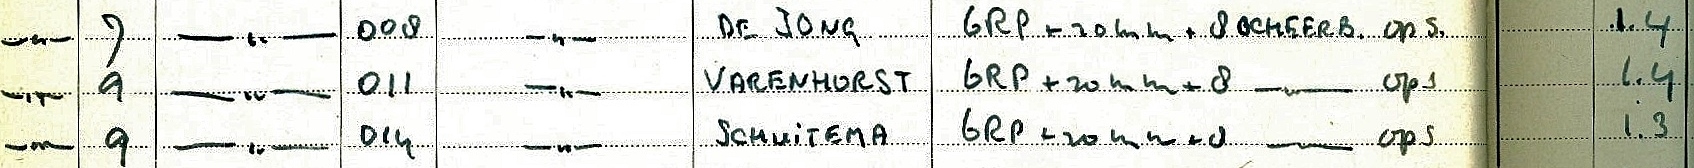 —"— 7 —"— 008 —"— DE JONG GRP + 20mm + 8 OCHEERB. ops. 1.4
—"— 9 —"— 011 —"— VARENHORST GRP + 20mm + 8 —"— ops 1.4
—"— 9 —"— 014 —"— SCHUITEMA GRP + 20mm + 8 —"— ops 1.3